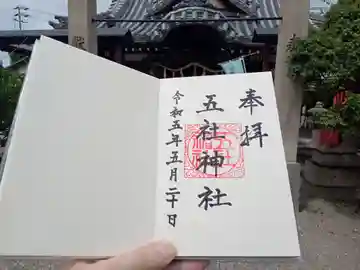 奉拝
五社神社
令和五年五月二十日